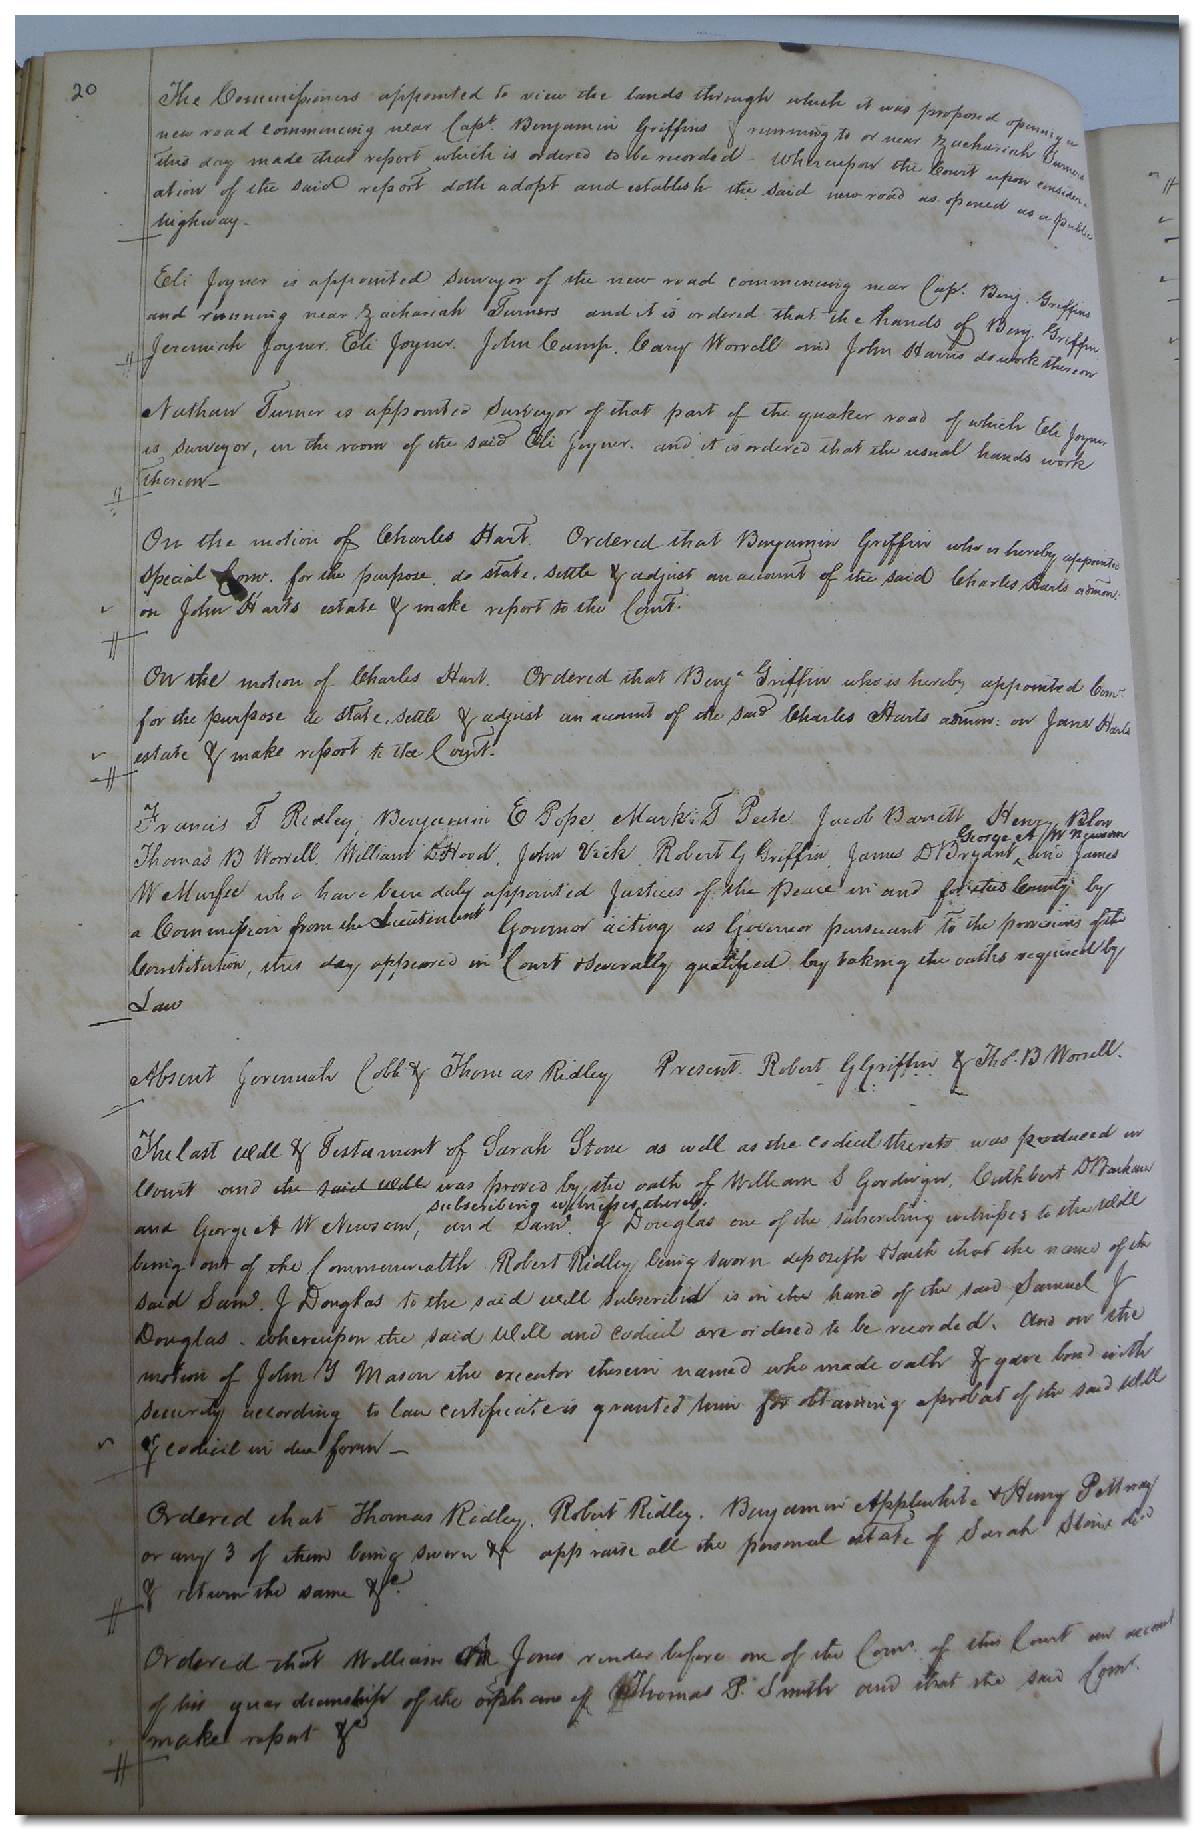 20
The Commissioners appointed to view the lands through which it was proposed opening a
new road commencing near Capt. Benjamin Griffins & running to or near Zachariah Turners
this day made their report which is ordered to be recorded - Whereupon the Court upon consider-
ation of the said report doth adopt and establish the said new road as opened as a public
highway -
Eli Joyner is appointed Surveyor of the new road commencing near Capt. Benj. Griffins
and running near Zachariah Turners and it is ordered that the hands of Benj. Griffin
Jeremiah Joyner. Eli Joyner. John Camp. Cary Worrell and John Harris do work thereon
Nathan Turner is appointed Surveyor of that part of the quaker road of which Eli Joyner
is surveyor, in the room of the said Eli Joyner. and it is ordered that the usual hands work
thereon -
On the motion of Charles Hart. Ordered that Benjamin Griffin who is hereby appointed
special Com. for the purpose, do state, settle & adjust an account of the said Charles Harts admon.
on John Harts estate & make report to the Court.
On the motion of Charles Hart. Ordered that Benja Griffin who is hereby appointed Comr
for the purpose do state, settle & adjust an account of the said Charles Harts admon: on Jane Harts
estate & make report to the Court.
Francis T Ridley, Benjamin E Pope, Mark: T Peete Jacob Barrett Henry Blow
George A W Newsom
Thomas B Worrell, William B Hood, John Vick, Robert G Griffin, James D Bryant and James
W Murfee who have been duly appointed Justices of the Peace in and for this County by
a Commission from the Lieutenant Governor acting as Governor pursuant to the provisions of the
Constitution, this day appeared in Court & severally qualified by taking the oaths required by
Law
Absent Jeremiah Cobb & Thomas Ridley Present. Robert G Griffin & Tho. B Worrell.
The last Will & Testament of Sarah Stone as well as the codicil thereto was produced in
Court and the said Will was proved by the oath of William S Cuthbert D Barham
subscribing witnesses thereto.
and George A W Newsom, and Saml. J Douglas one of the subscribing witnesses to the Will
being out of the Commonwealth Robert Ridley being sworn deposeth & saith that the name of the
said Saml. J Douglas to the said Will subscribed is in the hand of the said Samuel J
Douglas - whereupon the said Will and codicil are ordered to be recorded. And on the
motion of John Y Mason the executor therein named who made oath & gave bond with
security according to law certificate is granted him for obtaining a probat of the said Will
& codicil in due form -
Ordered that Thomas Ridley, Robert Ridley, Benjamin Applewhite & Henry Pettway
or any 3 of them being sworn &c appraise all the personal estate of Sarah Stone decd
& return the same &c.
Ordered that William Jones render before one of the Comrs. of this Court an account
of his guardianship of the orphans of Thomas P. Smith and that the said Comr.
make report &c